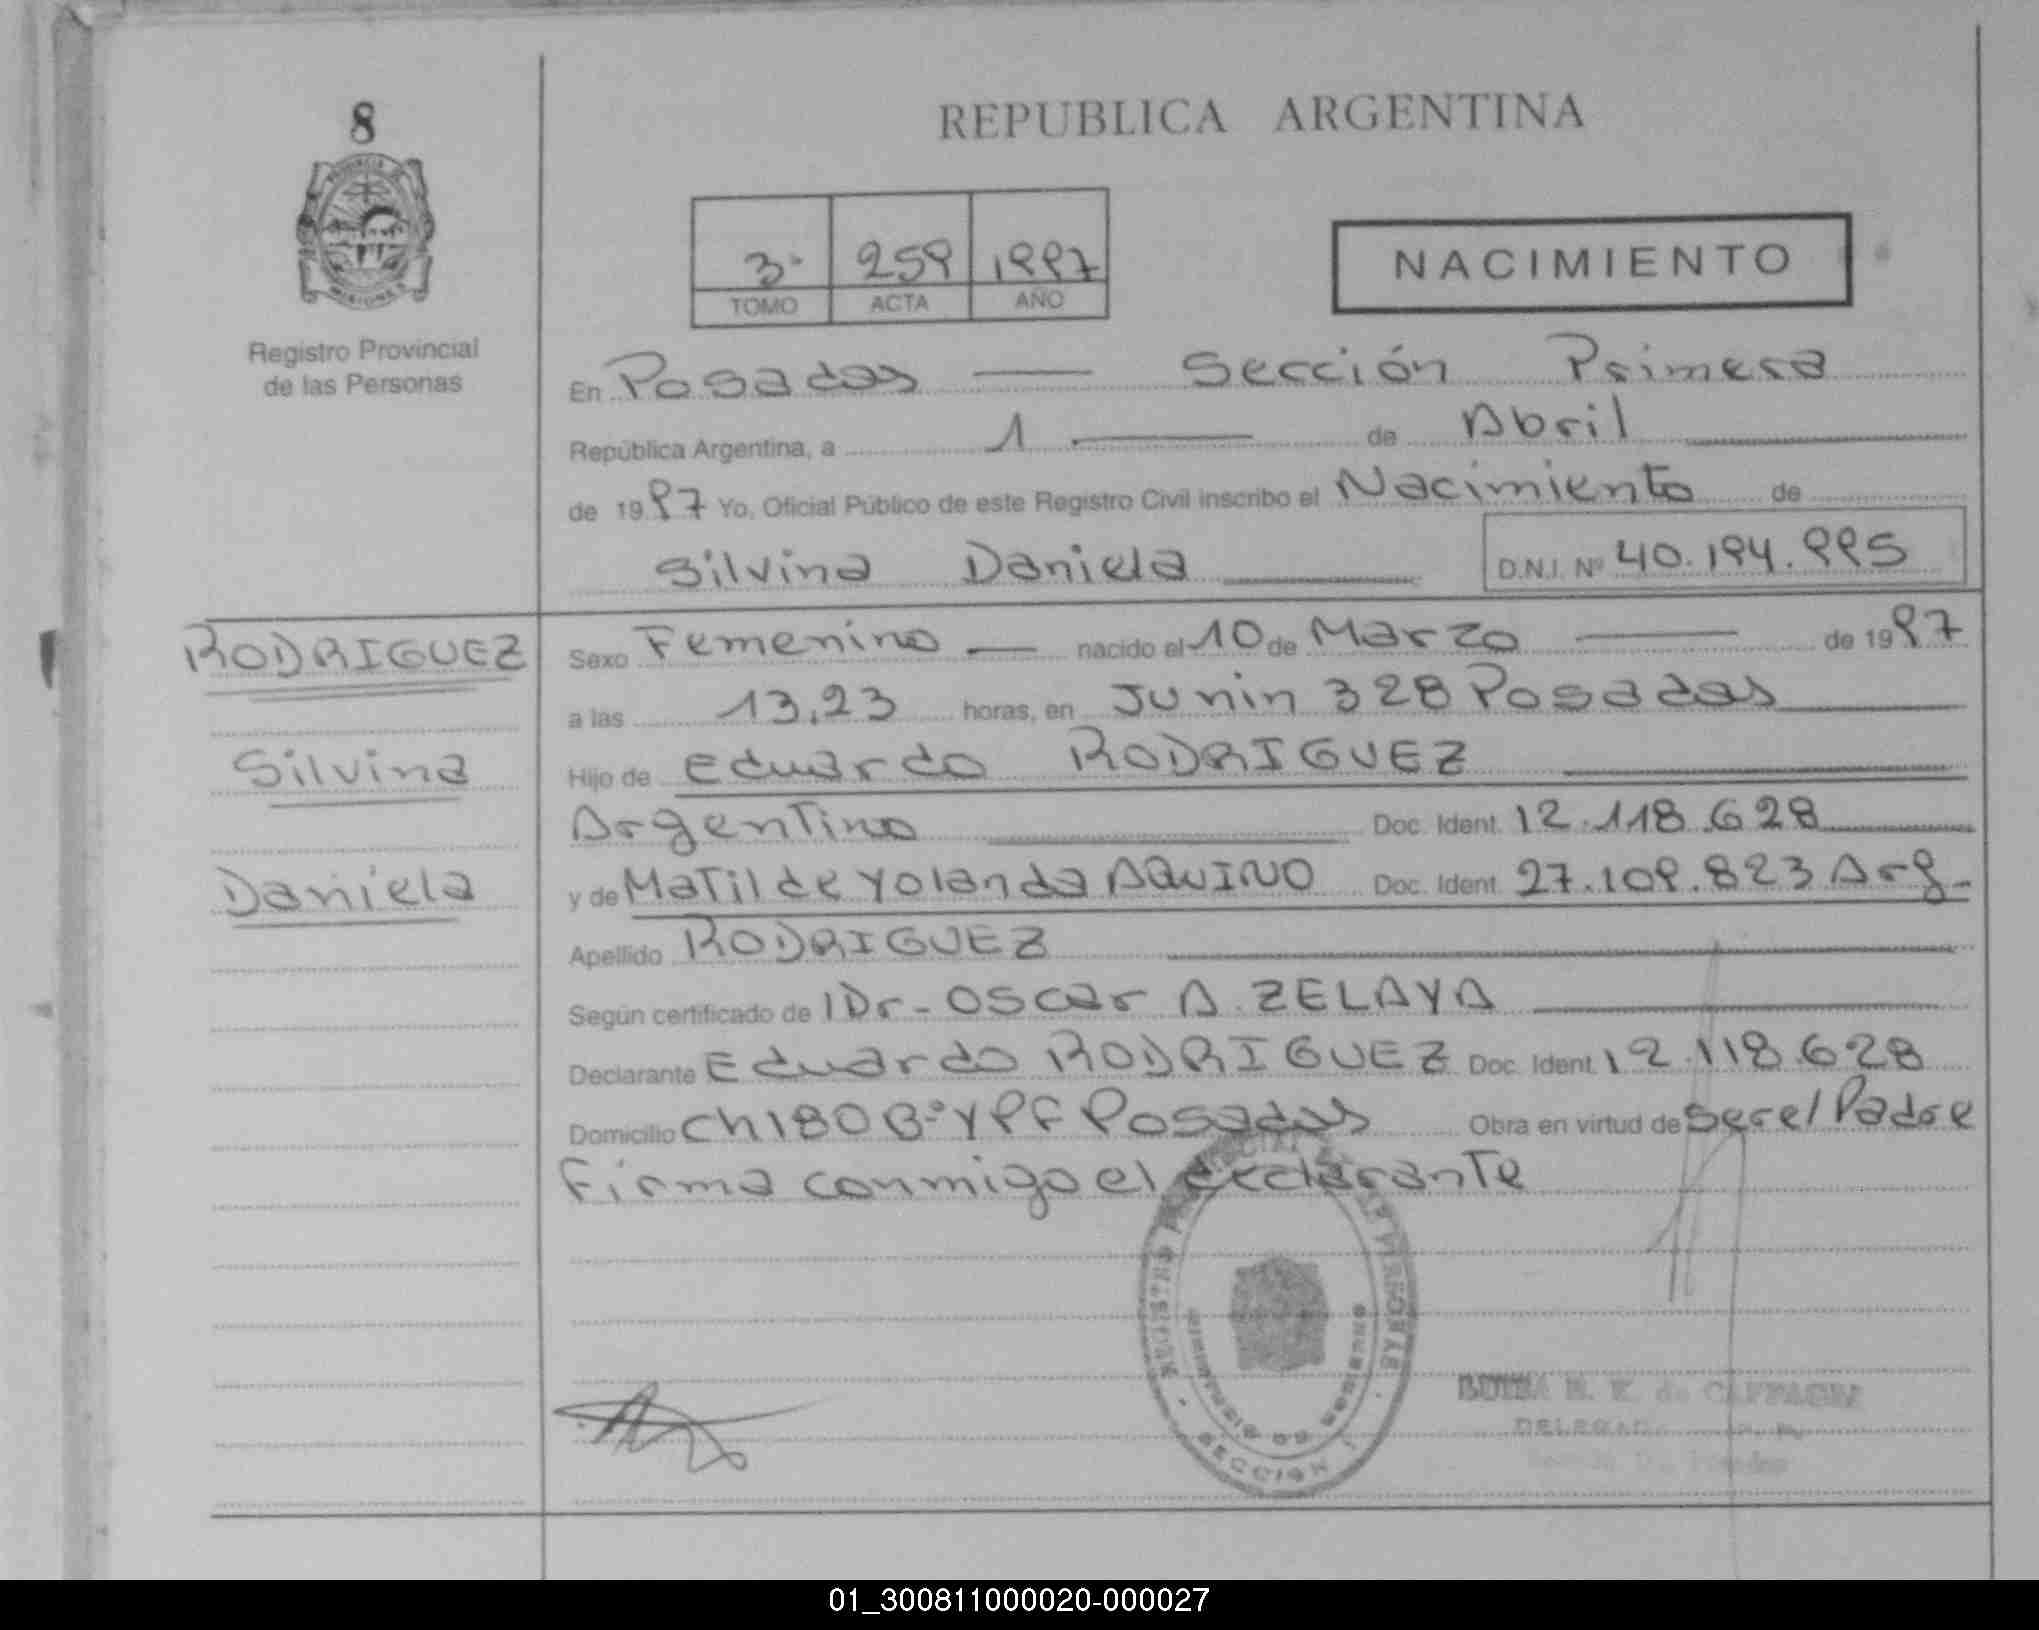 8
REPUBLICA ARGENTINA
3º 259 1997
TOMO ACTA AÑO
NACIMIENTO
Registro Provincial
de las Personas
En Posadas — Sección Primera
República Argentina, a 1 — de Abril
de 1997 Yo, Oficial Público de este Registro Civil inscribo el Nacimiento de
Silvina Daniela D.N.I. Nº 40.194.995
RODRIGUEZ
Silvina
Daniela
Sexo Femenino — nacido el 10 de Marzo — de 1997
a las 13,23 horas, en Junin 328 Posadas
Hijo de Eduardo RODRIGUEZ
Argentino Doc. Ident. 12.118.628
y de Matilde Yolanda AQUINO Doc. Ident. 27.109.823 Arg.
Apellido RODRIGUEZ
Según certificado de Dr. Oscar A. ZELAYA
Declarante Eduardo RODRIGUEZ Doc. Ident. 12.118.628
Domicilio Ch 180 Bº YPF Posadas Obra en virtud de ser el Padre
Firma conmigo el declarante
REGISTRO DE LAS PERSONAS
MINISTERIO DE GOBIERNO
SECCION 1
DELEGADA
01_300811000020-000027